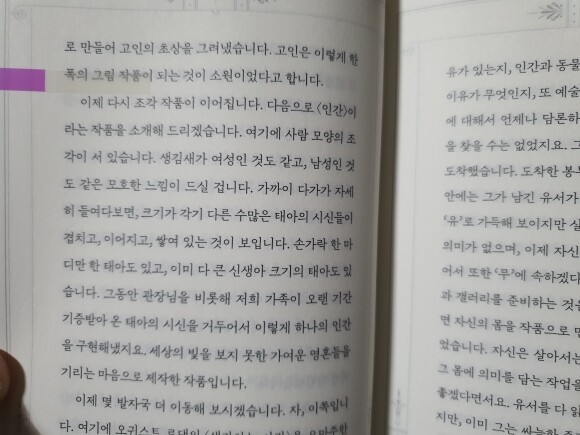 로 만들어 고인의 초상을 그려냈습니다. 고인은 이렇게 한
폭의 그림 작품이 되는 것이 소원이었다고 합니다.
이제 다시 조각 작품이 이어집니다. 다음으로 〈인간〉이
라는 작품을 소개해 드리겠습니다. 여기에 사람 모양의 조
각이 서 있습니다. 생김새가 여성인 것도 같고, 남성인 것
도 같은 모호한 느낌이 드실 겁니다. 가까이 다가가 자세
히 들여다보면, 크기가 각기 다른 수많은 태아의 시신들이
겹치고, 이어지고, 쌓여 있는 것이 보입니다. 손가락 한 마
디만 한 태아도 있고, 이미 다 큰 신생아 크기의 태아도 있
습니다. 그동안 관장님을 비롯해 저희 가족이 오랜 기간
기증받아 온 태아의 시신을 거두어서 이렇게 하나의 인간
을 구현해냈지요. 세상의 빛을 보지 못한 가여운 영혼들을
기리는 마음으로 제작한 작품입니다.
이제 몇 발자국 더 이동해 보시겠습니다. 자, 이쪽입니
다. 여기에 오귀스트 로댕의
유가 있는지, 인간과 동물
이유가 무엇인지, 또 예술
에 대해서 언제나 담론하
을 찾을 수는 없었지요. 그
도착했습니다. 도착한 봉
안에는 그가 남긴 유서가
'유'로 가득해 보이지만 실
의미가 없으며, 이제 자신
어서 또한 '무'에 속하겠다
과 갤러리를 준비하는 것은
면 자신의 몸을 작품으로 만
었습니다. 자신은 살아서는
그 몸에 의미를 담는 작업을
좋겠다면서요. 유서를 다 읽
지만, 이미 그는